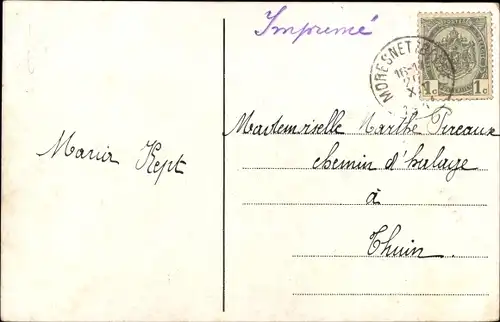 Imprimé
MORESNET (B
1c 1c
Mademoiselle Marthe Pereaux
chemin d'halage
à
Thuin.
Maria Kept